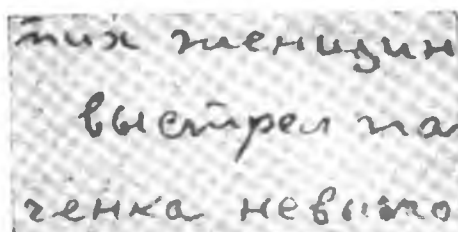 тих женщин
выстрел па
ченка невыто